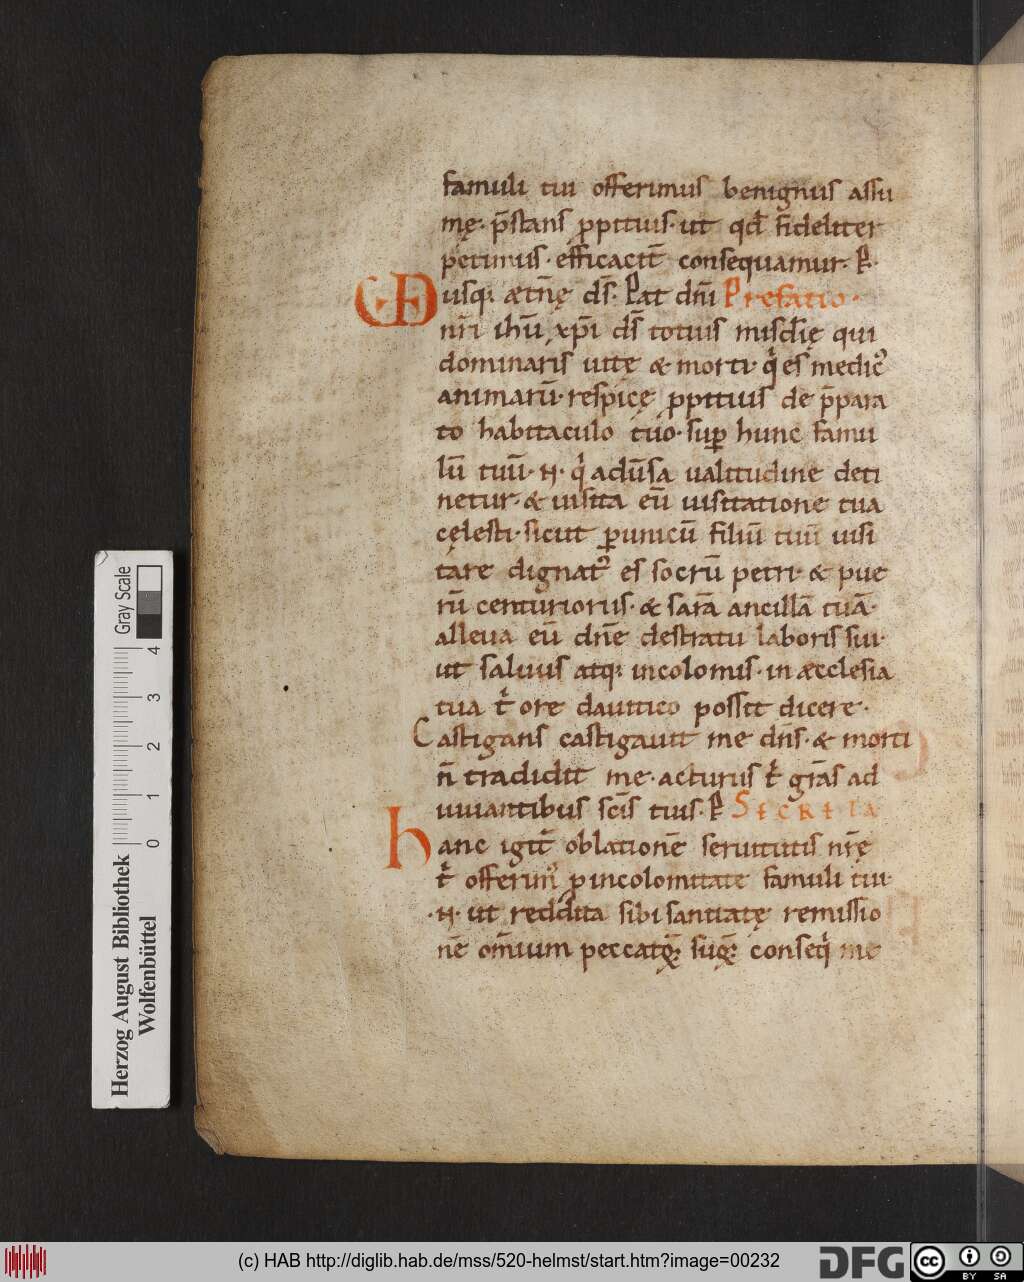 famuli tui offerimus benignus assu
mę. p̄stans ꝓpitius. ut qd̄ fideliter
petimus. efficacit̄ consequamur. P.
VD usq; æt̄nę ds̄. Pat dn̄i Prefatio.
nr̄i ihū xp̄i ds̄ totius misc̄dię qui
dominaris uitę & morti. q̇ es medic᾽
animarū. respicę ꝓpitius de p̄para
to habitaculo tuo. sup̄ hunc famu
lū tuū. N. q̇ adūsa ualitudine deti
netur. & uisita eū uisitatione tua
cęlesti. sicut ꝑunicū filiū tuū uisi
tare dignat᾽ es socrū petri. & pue
rū centurionis. & sarā ancillā tuā.
alleua eū dn̄e destratu laboris sui.
ut saluus atq; incolomis. in æcclesia
tua t᾽ ore dauitico possit dicere.
Castigans castigauit me dn̄s. & morti
n̄ tradidit me. acturus t᾽ grās ad
uiuantibus scīs tuis. P SECRETA
hanc igit᾽ oblationē seruitutis nr̄ę
t᾽ offerim᾽ ꝓincolomitate famuli tui.
.N. ut reddita sibi sanitatę remissio
nē om̄ium peccatoꝝ suoꝝ conseq̇ me
Gray Scale
4
3
2
1
0
Herzog August Bibliothek
Wolfenbüttel
(c) HAB http://diglib.hab.de/mss/520-helmst/start.htm?image=00232
DFG
cc
BY SA